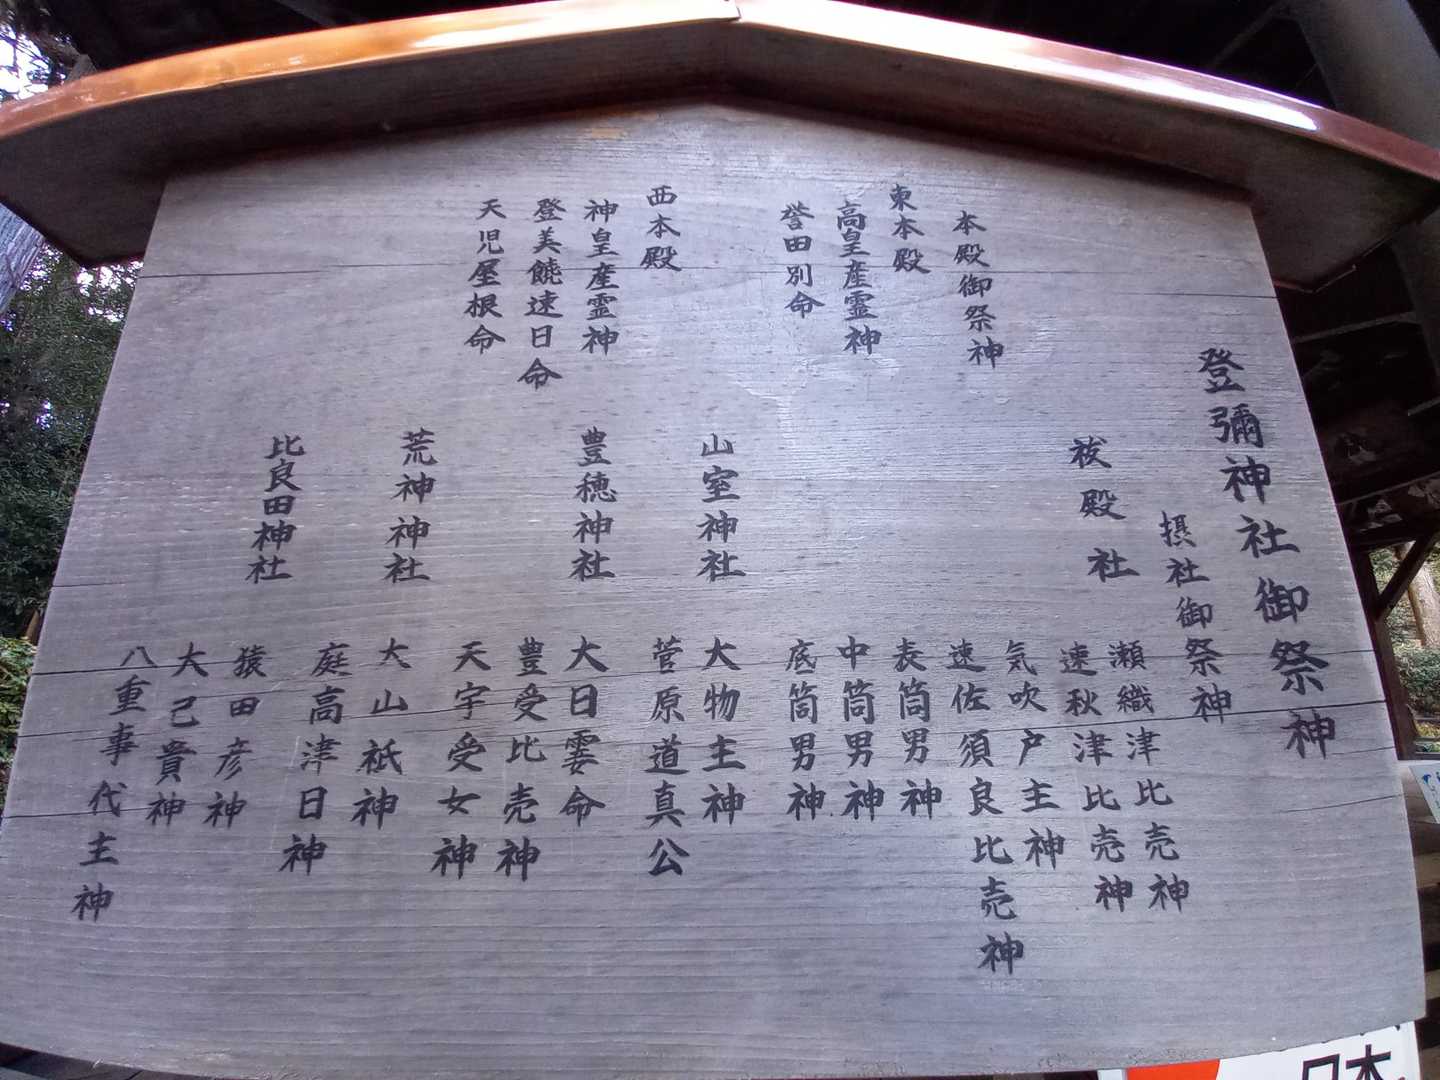 登彌神社御祭神
本殿御祭神
東本殿
高皇産霊神
誉田別命
西本殿
神皇産霊神
登美饒速日命
天児屋根命
摂社御祭神
祓殿社
瀬織津比売神
速秋津比売神
気吹戸主神
速佐須良比売神
表筒男神
中筒男神
底筒男神
山室神社
大物主神
菅原道真公
豊穂神社
大日孁命
豊受比売神
天宇受女神
荒神神社
大山祇神
庭高津日神
比良田神社
猿田彦神
大己貴神
八重事代主神
日本